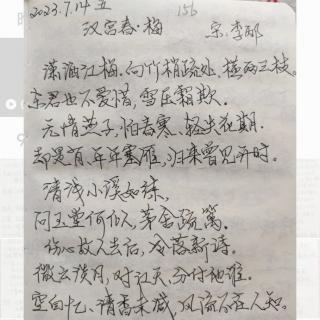 2023.7.14 五
156
汉宫春·梅
宋.李邴
潇洒江梅.向竹梢疏处.横两三枝.
东君也不爱惜,雪压霜欺.
无情燕子,怕春寒、轻失花期.
却是有.年年塞雁,归来曾见开时.
清浅小溪如练,
问玉堂何似.茅舍疏篱.
伤心故人去后,冷落新诗.
微云淡月,对江天.分付他谁.
空自忆、清香未减,风流不在人知.